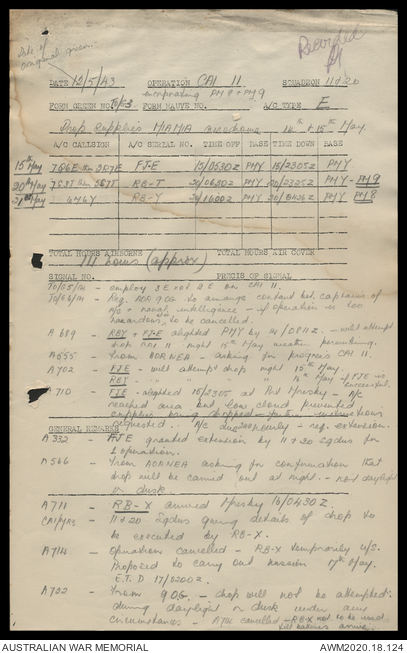 Date of
original green
Recorded
DATE 12/5/43 OPERATION CAI 11 SQUADRON 11 & 20
incorporating PM 8 & PM 9
FORM GREEN NO. 70/53 FORM MAUVE NO. A/C TYPE E
Drop supplies MIAMIA aerodrome 14th & 15th May.
A/C CALLSIGN A/C SERIAL NO. TIME OFF BASE TIME DOWN BASE
15th May FJ-E 15/0530Z PMY 15/2305Z PMY
20th May RB-T 20/0630Z PMY 20/2325Z PMY - PM 9
RB-Y PMY PMY PM 8
TOTAL HOURS AIRBORNE TOTAL HOURS AIR COVER
111 hours (approx)
SIGNAL NO. PRECIS OF SIGNAL
employ 3 E not 2 E on CAI 11.
Req. AOR 9OG to arrange contact bet. captains of
A/c & naval intelligence - if operation is too
hazardous, to be cancelled.
A 689 RBY & FJE alighted PMY by 14/0811Z. - will attempt
drop CAI 11 night 15th May weather permitting.
A 555 From AORNEA - asking for progress CAI 11.
A 702 FJE - will attempt drop night 15th May.
RBY - " " " 16th May if FJE is
successful.
A 710 FJE - alighted 15/2305 at Pt Moresby - A/c
reached area but low cloud prevented
supplies being dropped - instructions
requested. A/c due 240 hourly - req. extension.
GENERAL REMARKS
A 332 FJE granted extension by 11 & 20 Sqdns for
1 operation.
A 566 From AORNEA asking for confirmation that
drop will be carried out at night. - not daylight
or dusk
A 711 RB-X arrived Moresby 16/0430Z.
11 & 20 Sqdns giving details of drop to
be executed by RB-X.
A 714 Operation cancelled - RB-X temporarily u/s.
Proposed to carry out mission 17th May.
E.T.D 17/0200Z.
A 702 From 9OG - drop will not be attempted
during daylight or dusk under any
circumstances - A 714 cancelled - RB-X not to be used
AUSTRALIAN WAR MEMORIAL AWM2020.18.124